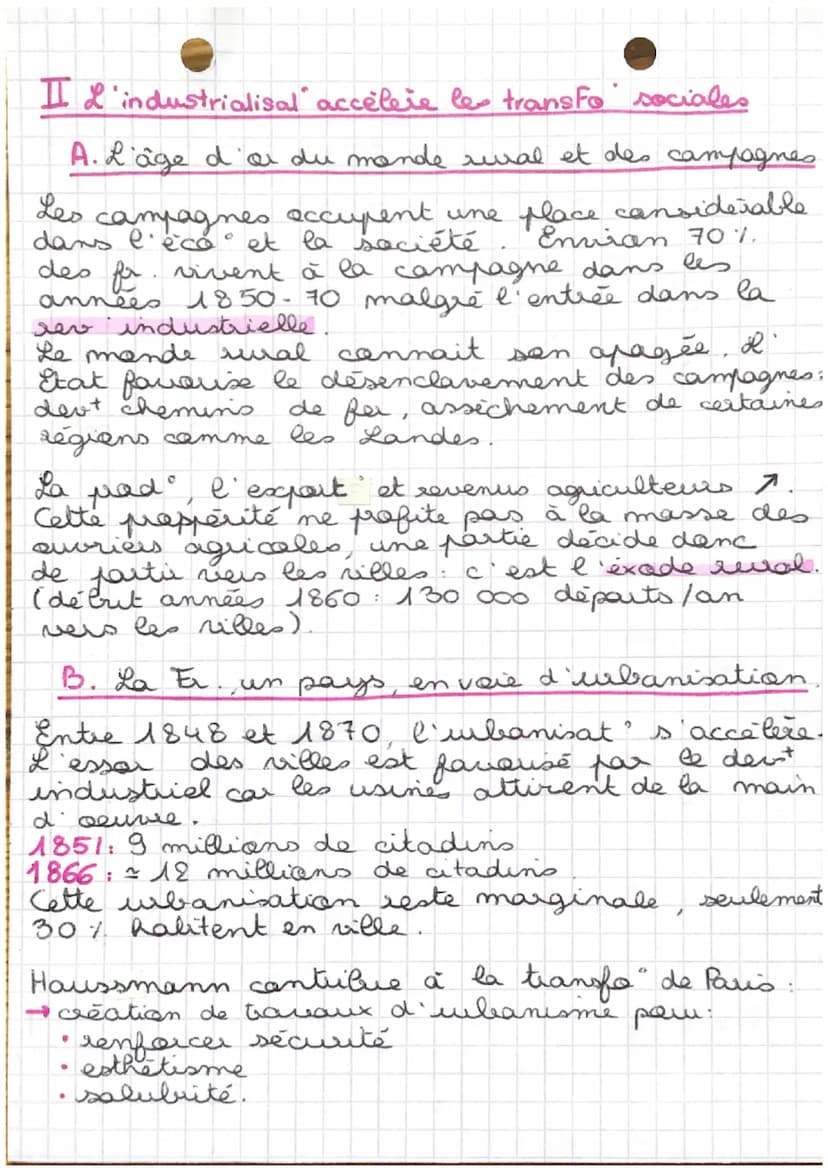 II L'industrialisat° accélère les transfo° sociales
A. L'âge d'or du monde rural et des campagnes
Les campagnes occupent une place considérable
dans l'éco° et la société. Environ 70 %
des fr. vivent à la campagne dans les
années 1850-70 malgré l'entrée dans la
rev° industrielle.
Le monde rural connait son apogée. L'
État favorise le désenclavement des campagnes:
devt chemins de fer, assèchement de certaines
régions comme les Landes.
La prod°, l'export° et revenus agriculteurs ↗.
Cette prospérité ne profite pas à la masse des
ouvriers agricoles, une partie décide donc
de partir vers les villes : c'est l'éxode rural.
(début années 1860 : 130 000 départs/an
vers les villes).
B. La Fr., un pays en voie d'urbanisation.
Entre 1848 et 1870, l'urbanisat° s'accélère.
L'essor des villes est favorisé par le devt
industriel car les usines attirent de la main
d'oeuvre.
1851: 9 millions de citadins
1866 : ≃ 12 millions de citadins.
Cette urbanisation reste marginale, seulement
30 % habitent en ville.
Haussmann contribue à la transfo° de Paris :
→ création de travaux d'urbanisme pour:
• renforcer sécurité
• esthétisme
• salubrité.